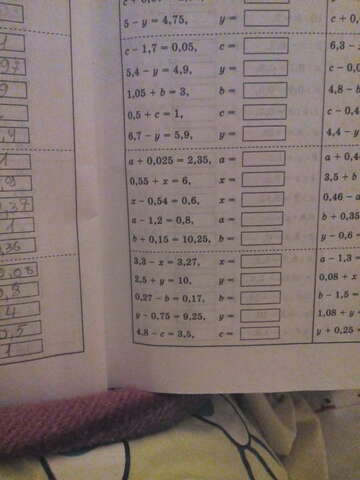 5 − y = 4,75, y =
c − 1,7 = 0,05, c =
5,4 − y = 4,9, y =
1,05 + b = 3, b =
0,5 + c = 1, c =
6,7 − y = 5,9, y =
a + 0,025 = 2,35, a =
0,55 + x = 6, x =
x − 0,54 = 0,6, x =
a − 1,2 = 0,8, a =
b + 0,15 = 10,25, b =
3,3 − x = 3,27, x =
2,5 + y = 10, y =
0,27 − b = 0,17, b =
y − 0,75 = 9,25, y =
4,8 − c = 3,5, c =
6,3 −
c − 0,0
4,8 − b
c − 0,4
4,4 − y
a + 0,4
3,5 + b
0,46 − a
b + 0,35
y − 0,6 =
a − 1,3 =
0,08 + x
b − 1,5 =
1,08 + y
y + 0,25 =